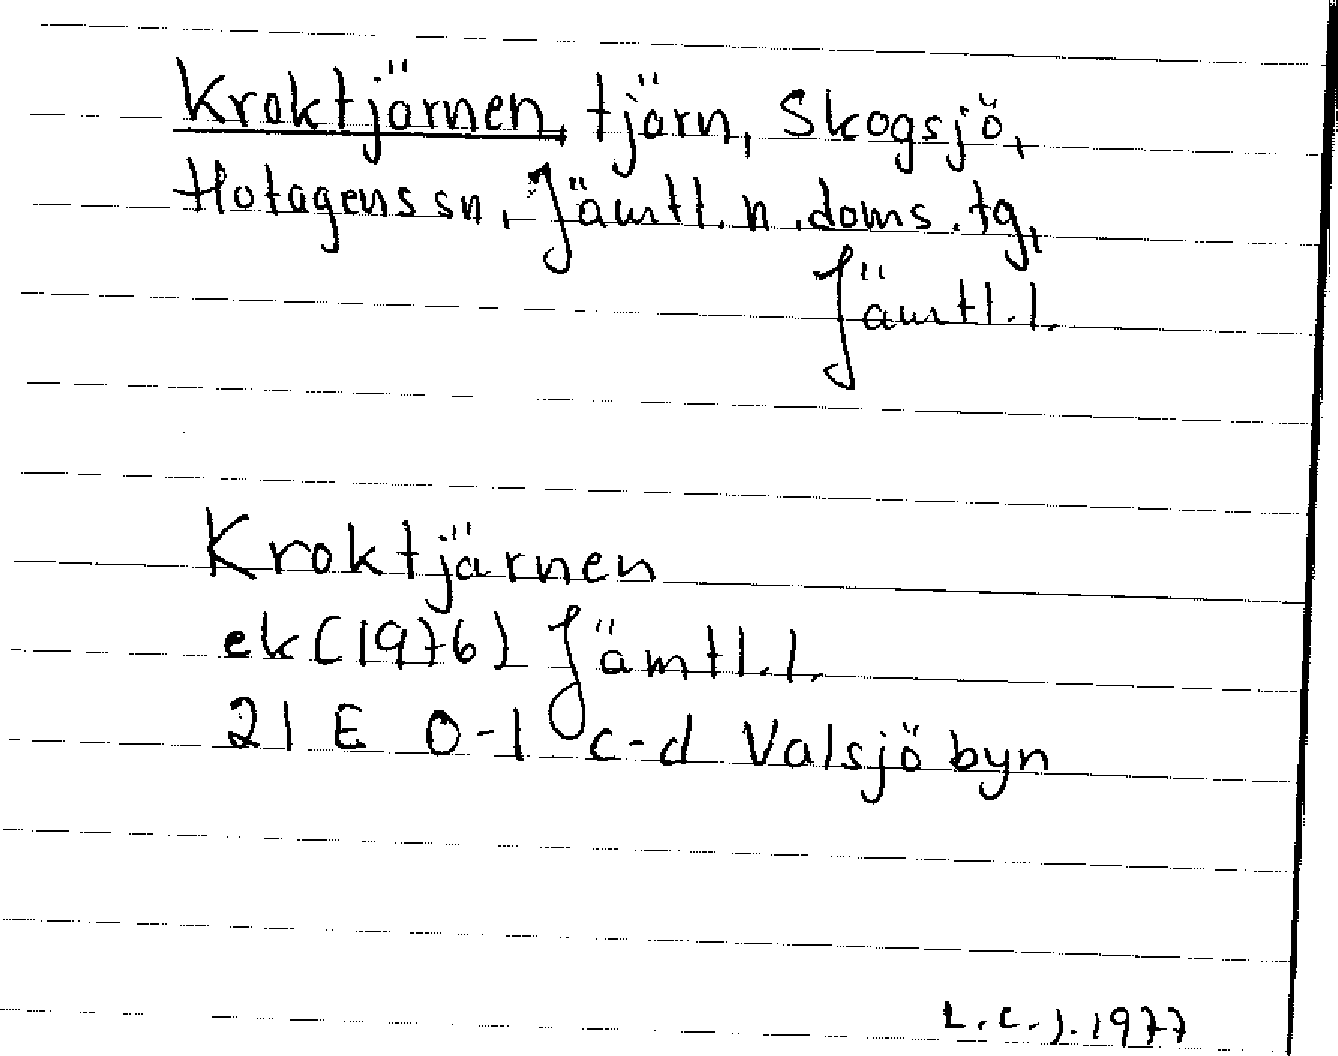 Kroktjärnen, tjärn, Skogsjö,
Hotagens sn, Jämtl. n. doms. tg,
Jämtl. l.
Kroktjärnen
ek (1976) Jämtl. l.
21 E 0-1 c-d Valsjöbyn
L.C.J. 1977